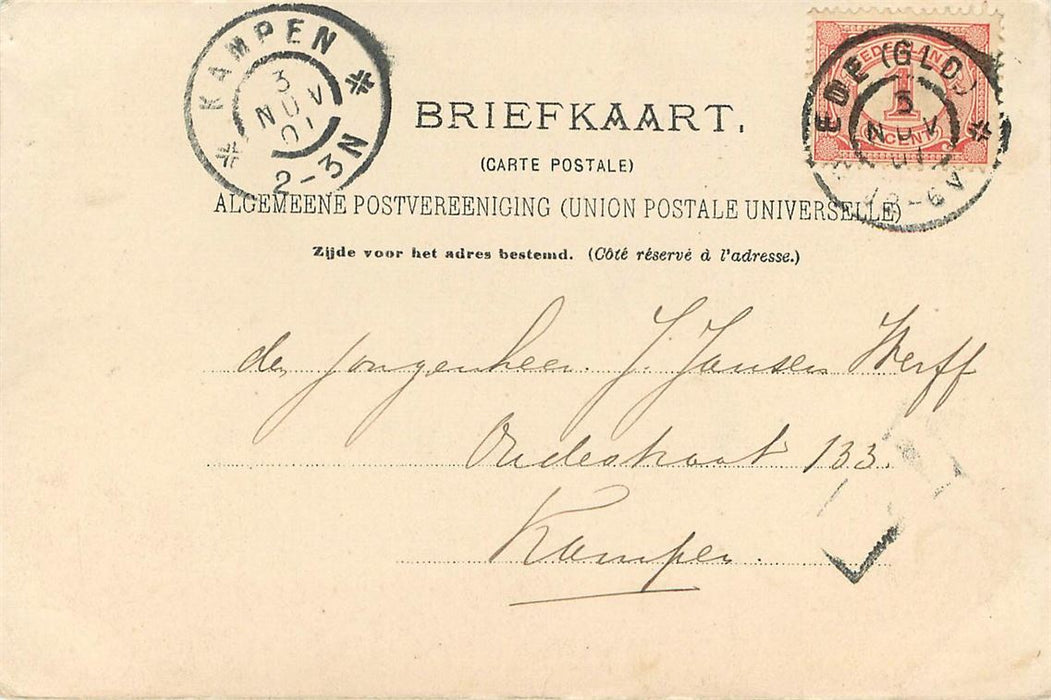 KAMPEN
3
NOV
01
2-3N
NEDERLAND
1
CENT
EDE (GLD)
3
NOV
01
-6V
BRIEFKAART.
(CARTE POSTALE)
ALGEMEENE POSTVEREENIGING (UNION POSTALE UNIVERSELLE)
Zijde voor het adres bestemd. (Côté réservé à l'adresse.)
den jongenheer. J. Jansen Werff
Oudestraat 133.
Kampen.